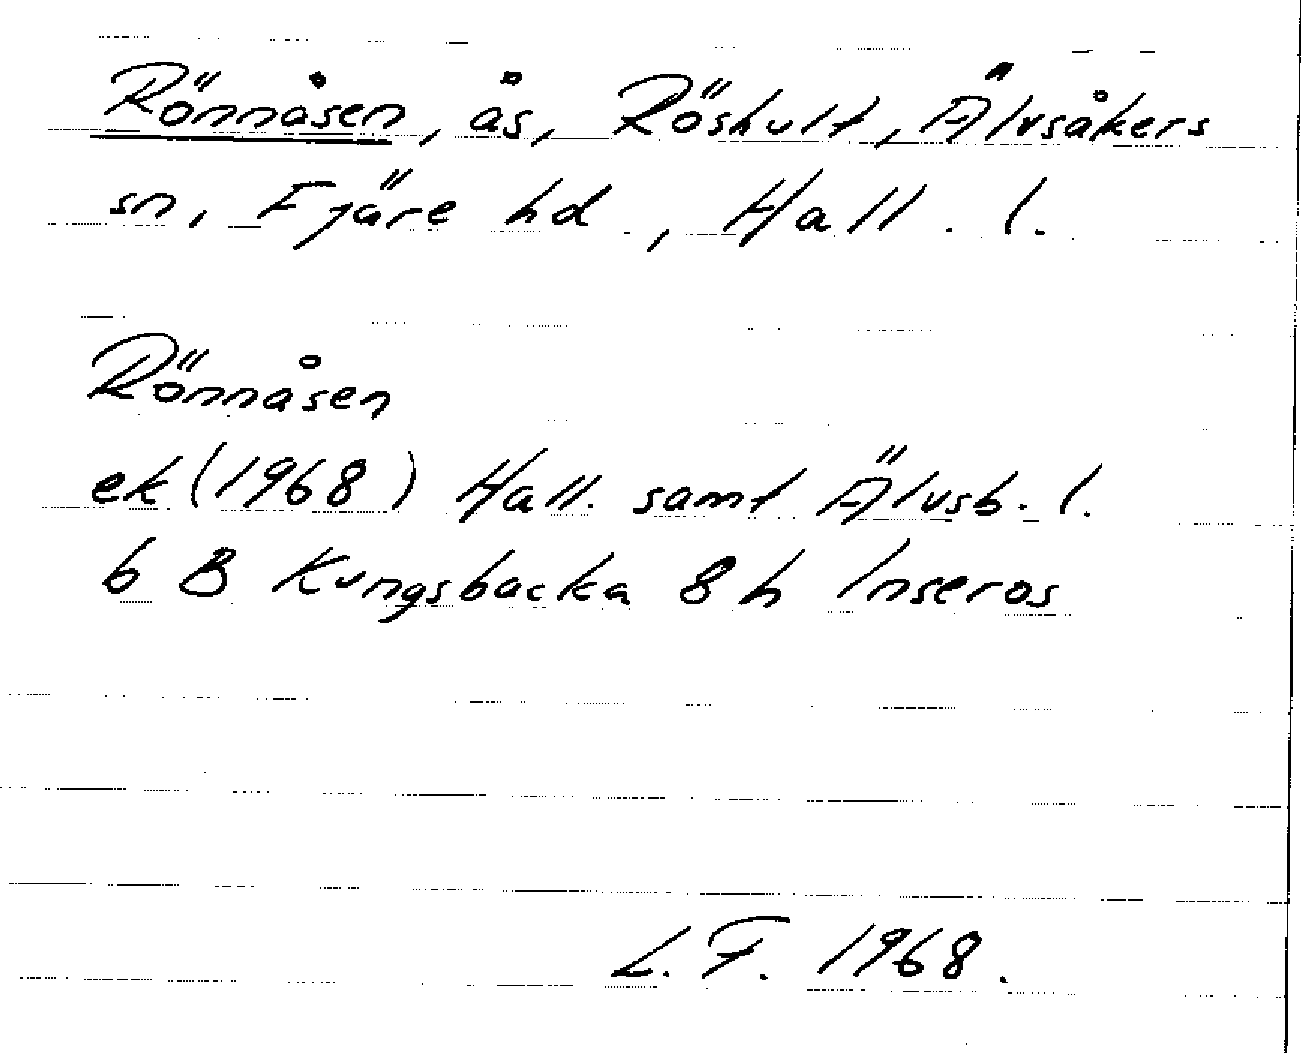 Rönnåsen, ås, Röshult, Älvsåkers
sn, Fjäre hd, Hall. l.
Rönnåsen
ek (1968) Hall. samt Älvsb. l.
6 B Kungsbacka 8 h Inseros
L. F. 1968.